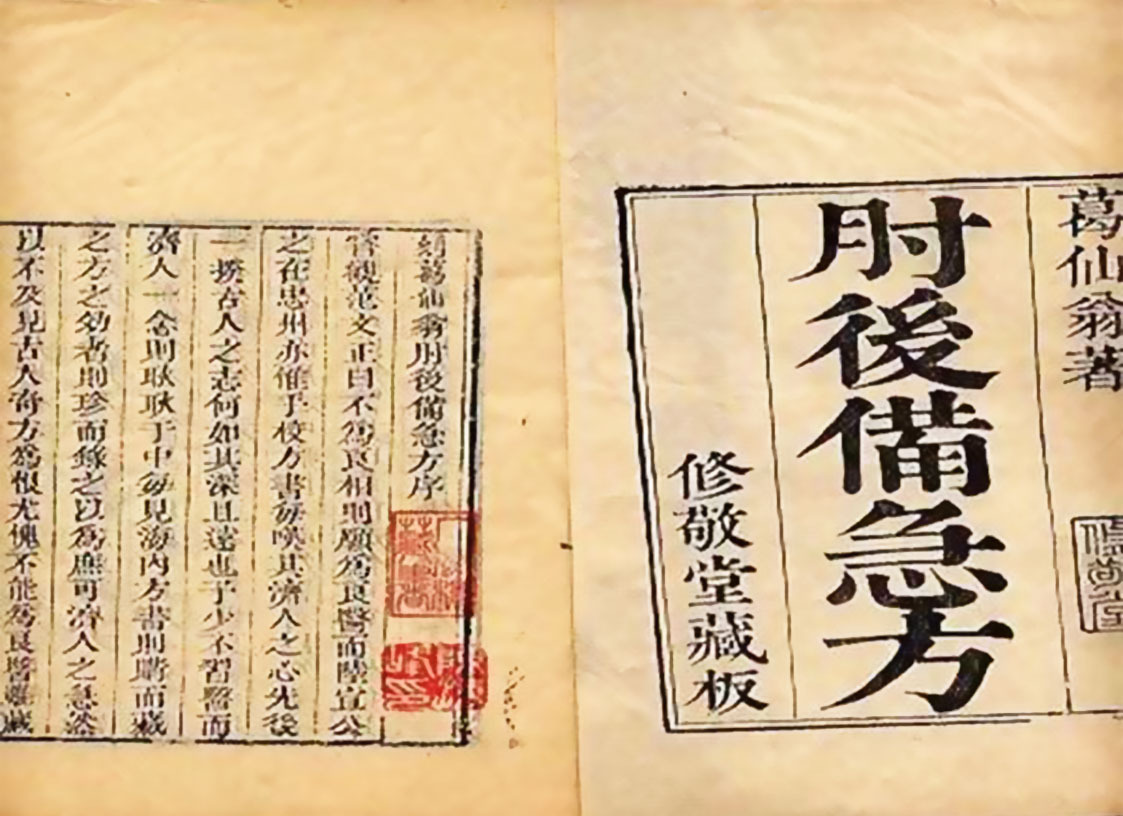 葛仙翁著
肘後備急方
修敬堂藏板
刻葛仙翁肘後備急方序
嘗觀范文正曰不爲良相則願爲良醫而陸宣公
之在忠州亦惟手校方書每嘆其濟人之心先後
一揆古人之志何如其深且遠也予少不習醫而
濟人一念則耿耿于中每見海內方書則購而藏
之方之効者則珍而錄之以爲庶可濟人之急然
以不及見古人奇方爲恨尤愧不能爲良醫雖藏